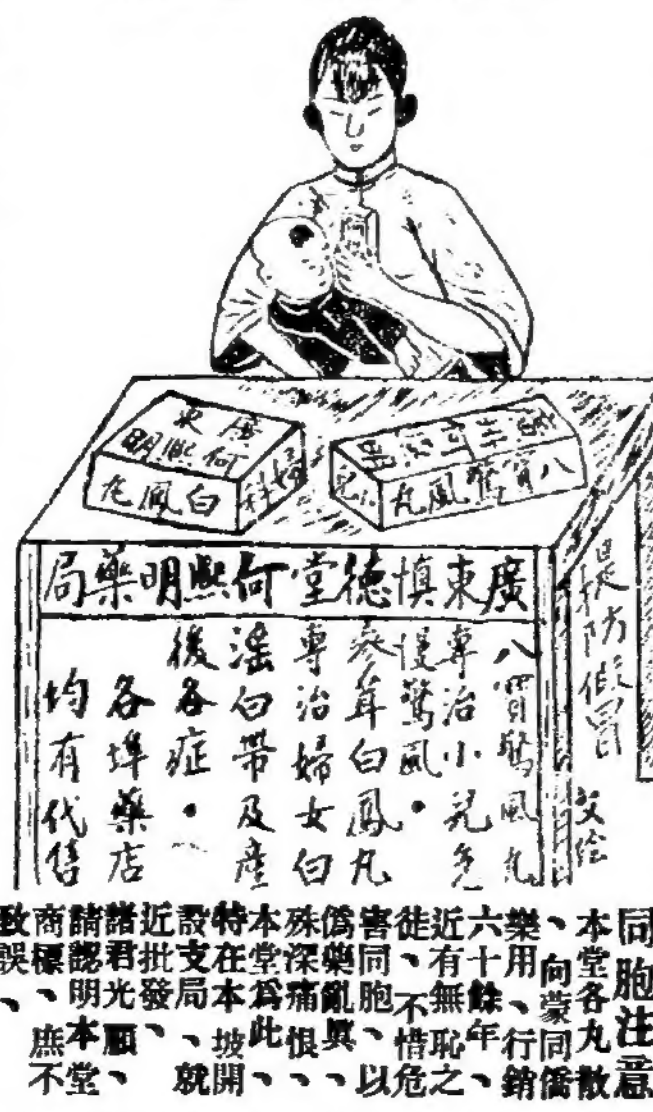 廣東
何熙明
婦科
白鳳丸
何熙明
八寶驚風丸
小兒
廣東慎德堂何熙明藥局
八寶驚風丸
專治小兒急
慢驚風·
參茸白鳳丸
專治婦女白
滛白帶及產
後各症·
各埠藥店
均有代售
提防假冒
同胞注意
本堂各丸散
、向蒙同僑
樂用、行銷
六十餘年、
近有無恥之
徒、不惜危
害同胞、以
僞藥亂眞、
殊深痛恨、
本堂爲此、
特在本坡開
設支局、就
近批發、
諸君光顧、
請認明本堂
商標、庶不
致誤、